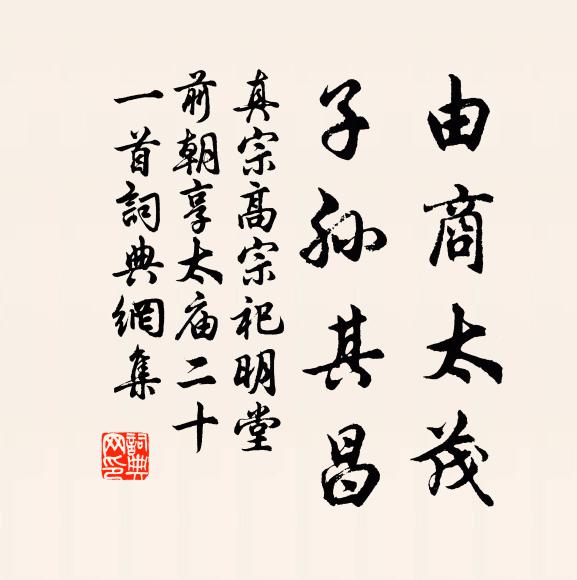 由商太茂
子孙其昌
真宗高宗祀明堂
前朝享太庙二十
一首詞典網集
詞典
网印